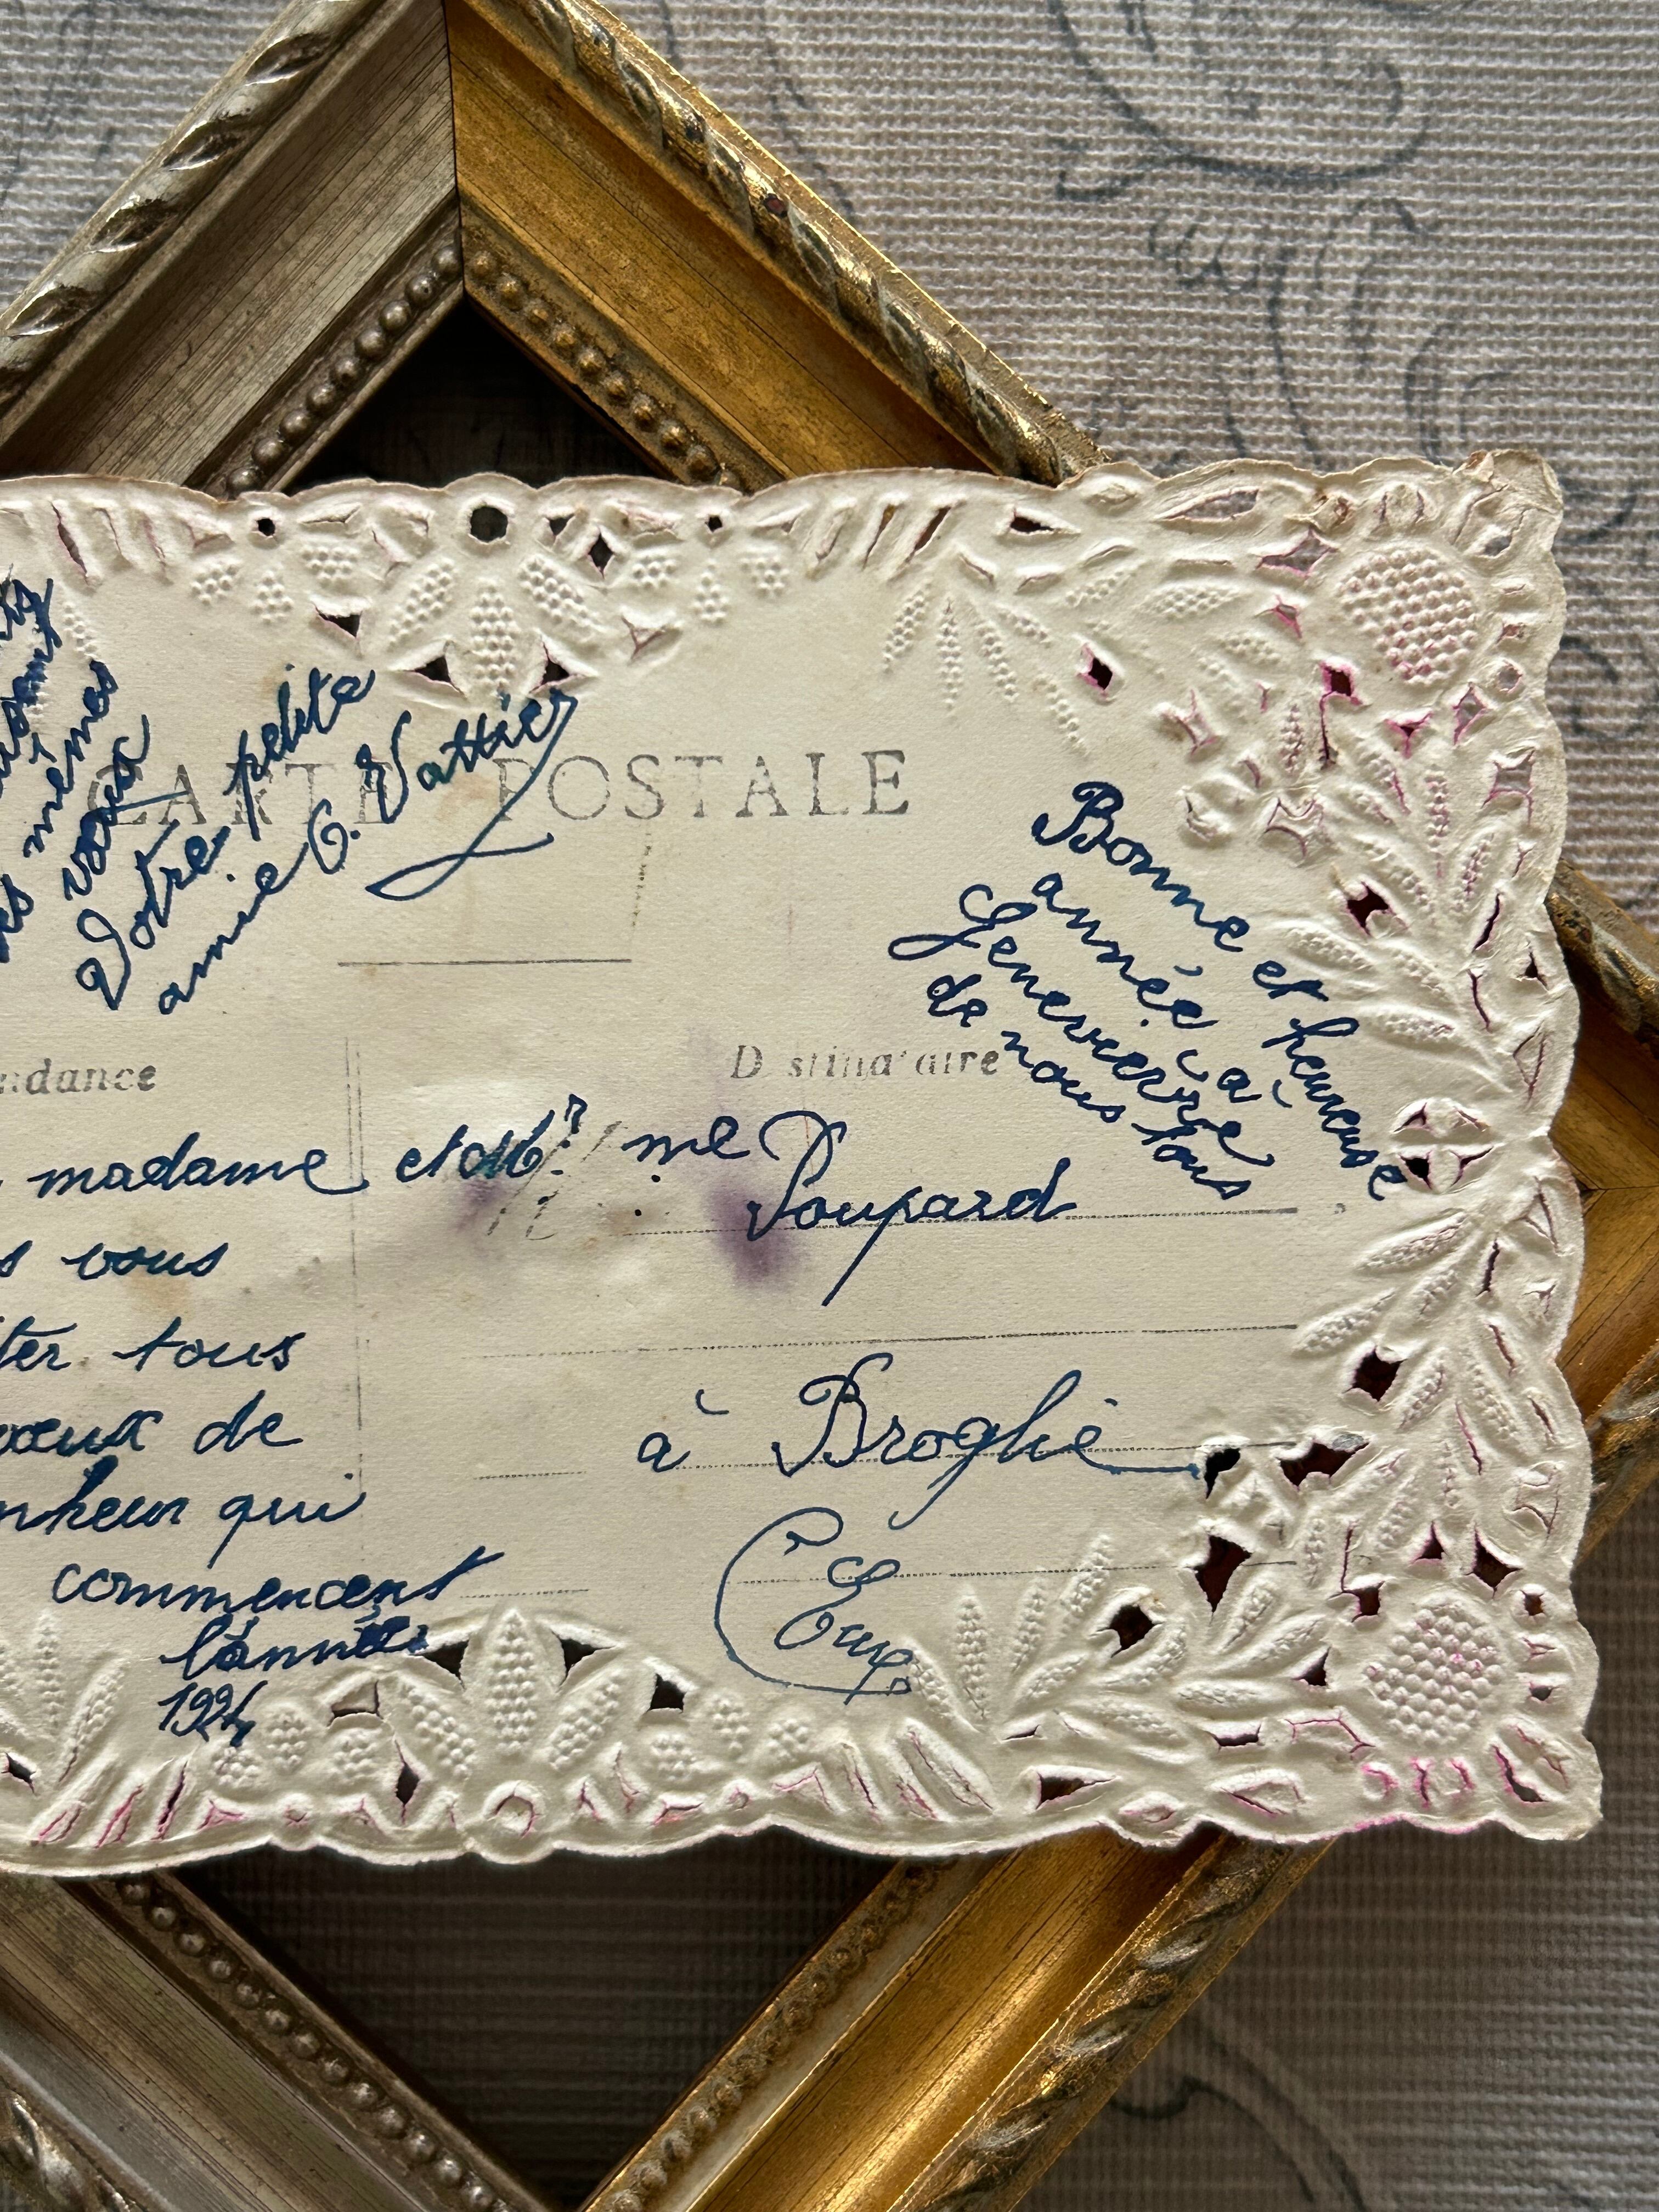 mêmes
vœux
Votre petite
amie G. Vattier
CARTE POSTALE
Bonne et heureuse
année à
Genevieve
de nous tous
ndance
D stina aire
madame et Mr me Poupard
s vous
ter tous
oeux de
nheur qui
commencent
l'année
1924
à Broglie
Eure